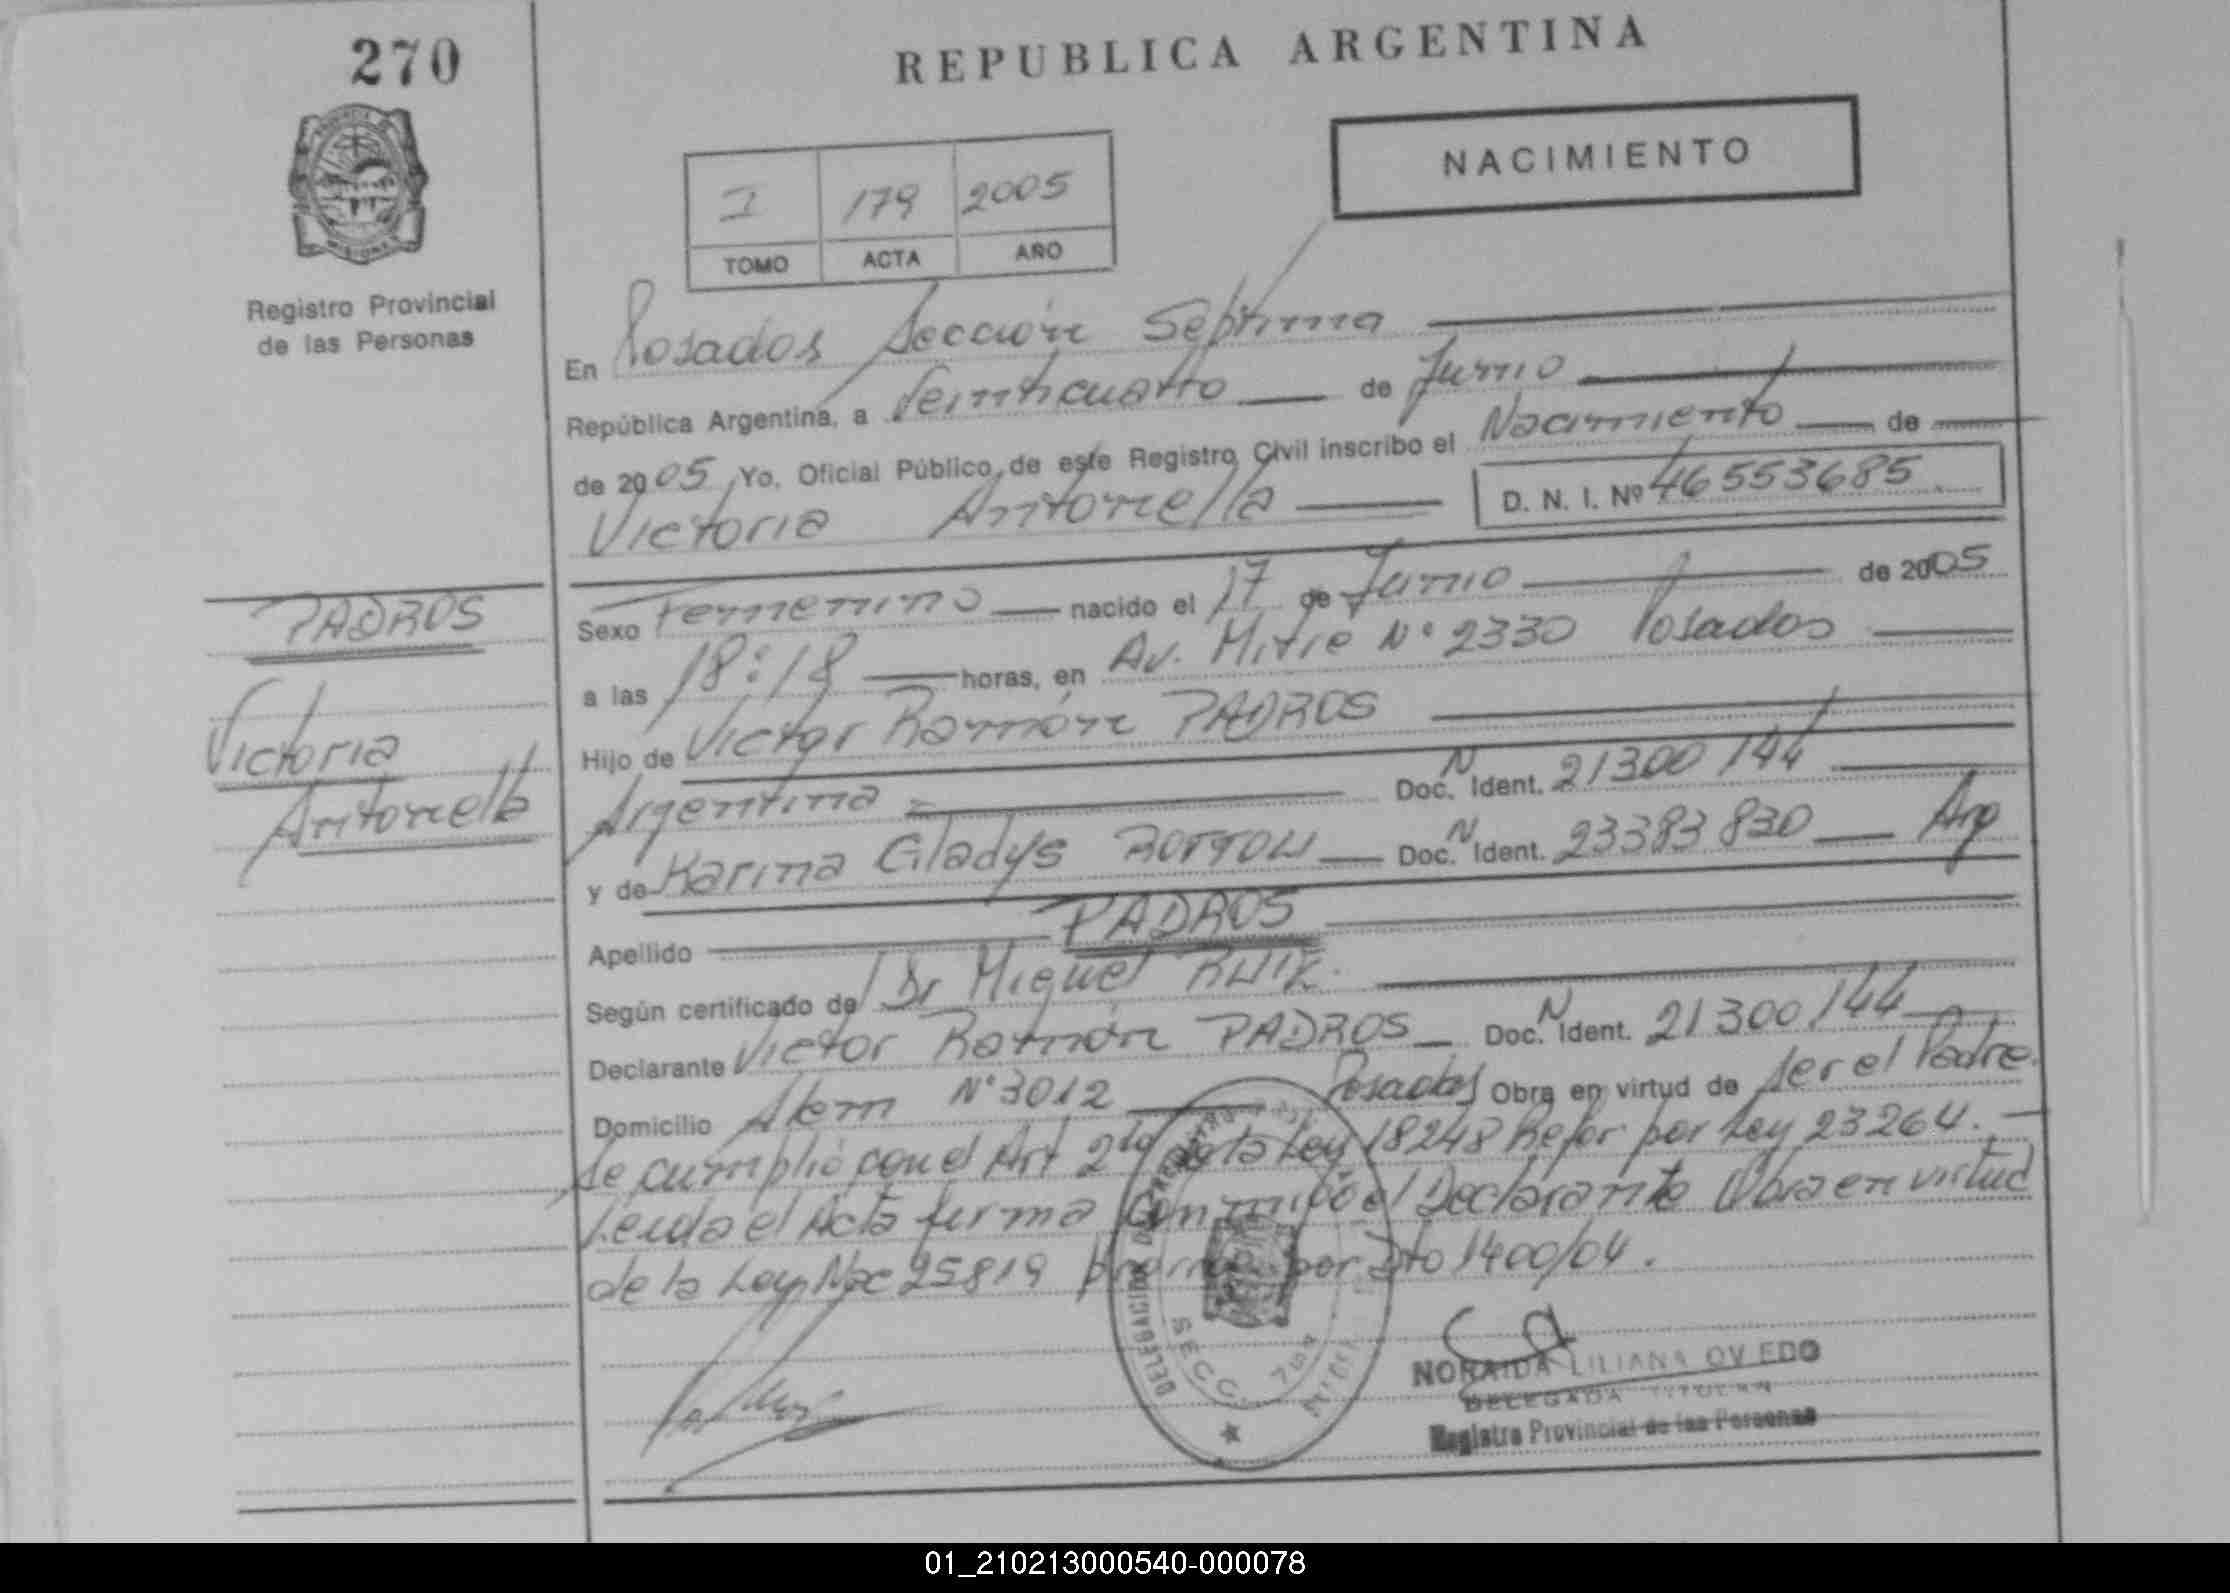 270
REPUBLICA ARGENTINA
NACIMIENTO
I 179 2005
TOMO ACTA AÑO
Registro Provincial
de las Personas
En Posadas Sección Séptima
República Argentina, a Veinticuatro de Junio
de 2005 Yo, Oficial Público, de este Registro Civil inscribo el Nacimiento de
Victoria Antonella D. N. I. Nº 46553685
PADROS
Victoria
Antonella
Sexo Femenino nacido el 17 de Junio de 2005
a las 18:18 horas, en Av. Mitre Nº 2330 Posadas
Hijo de Victor Ramón PADROS
Argentina Doc. N Ident. 21300144
y de Karina Gladys Doc. N Ident. 23383830 Arg
Apellido PADROS
Según certificado de Dr Miguel
Declarante Victor Ramón PADROS Doc. N Ident. 21300144
Domicilio Alem Nº 3012 Posadas Obra en virtud de ser el Padre.
Se cumplió con el Art 2do de la Ley 18248 Refor por Ley 23264.
Leida el Acta firma Conmigo el Declarante Obra en virtud
de la Ley Nac 25819 por Dto 1400/04.
DELEGACION
SECC. 7ma
NORAIDA LILIANA OVIEDO
DELEGADA TITULAR
Registro Provincial de las Personas
01_210213000540-000078